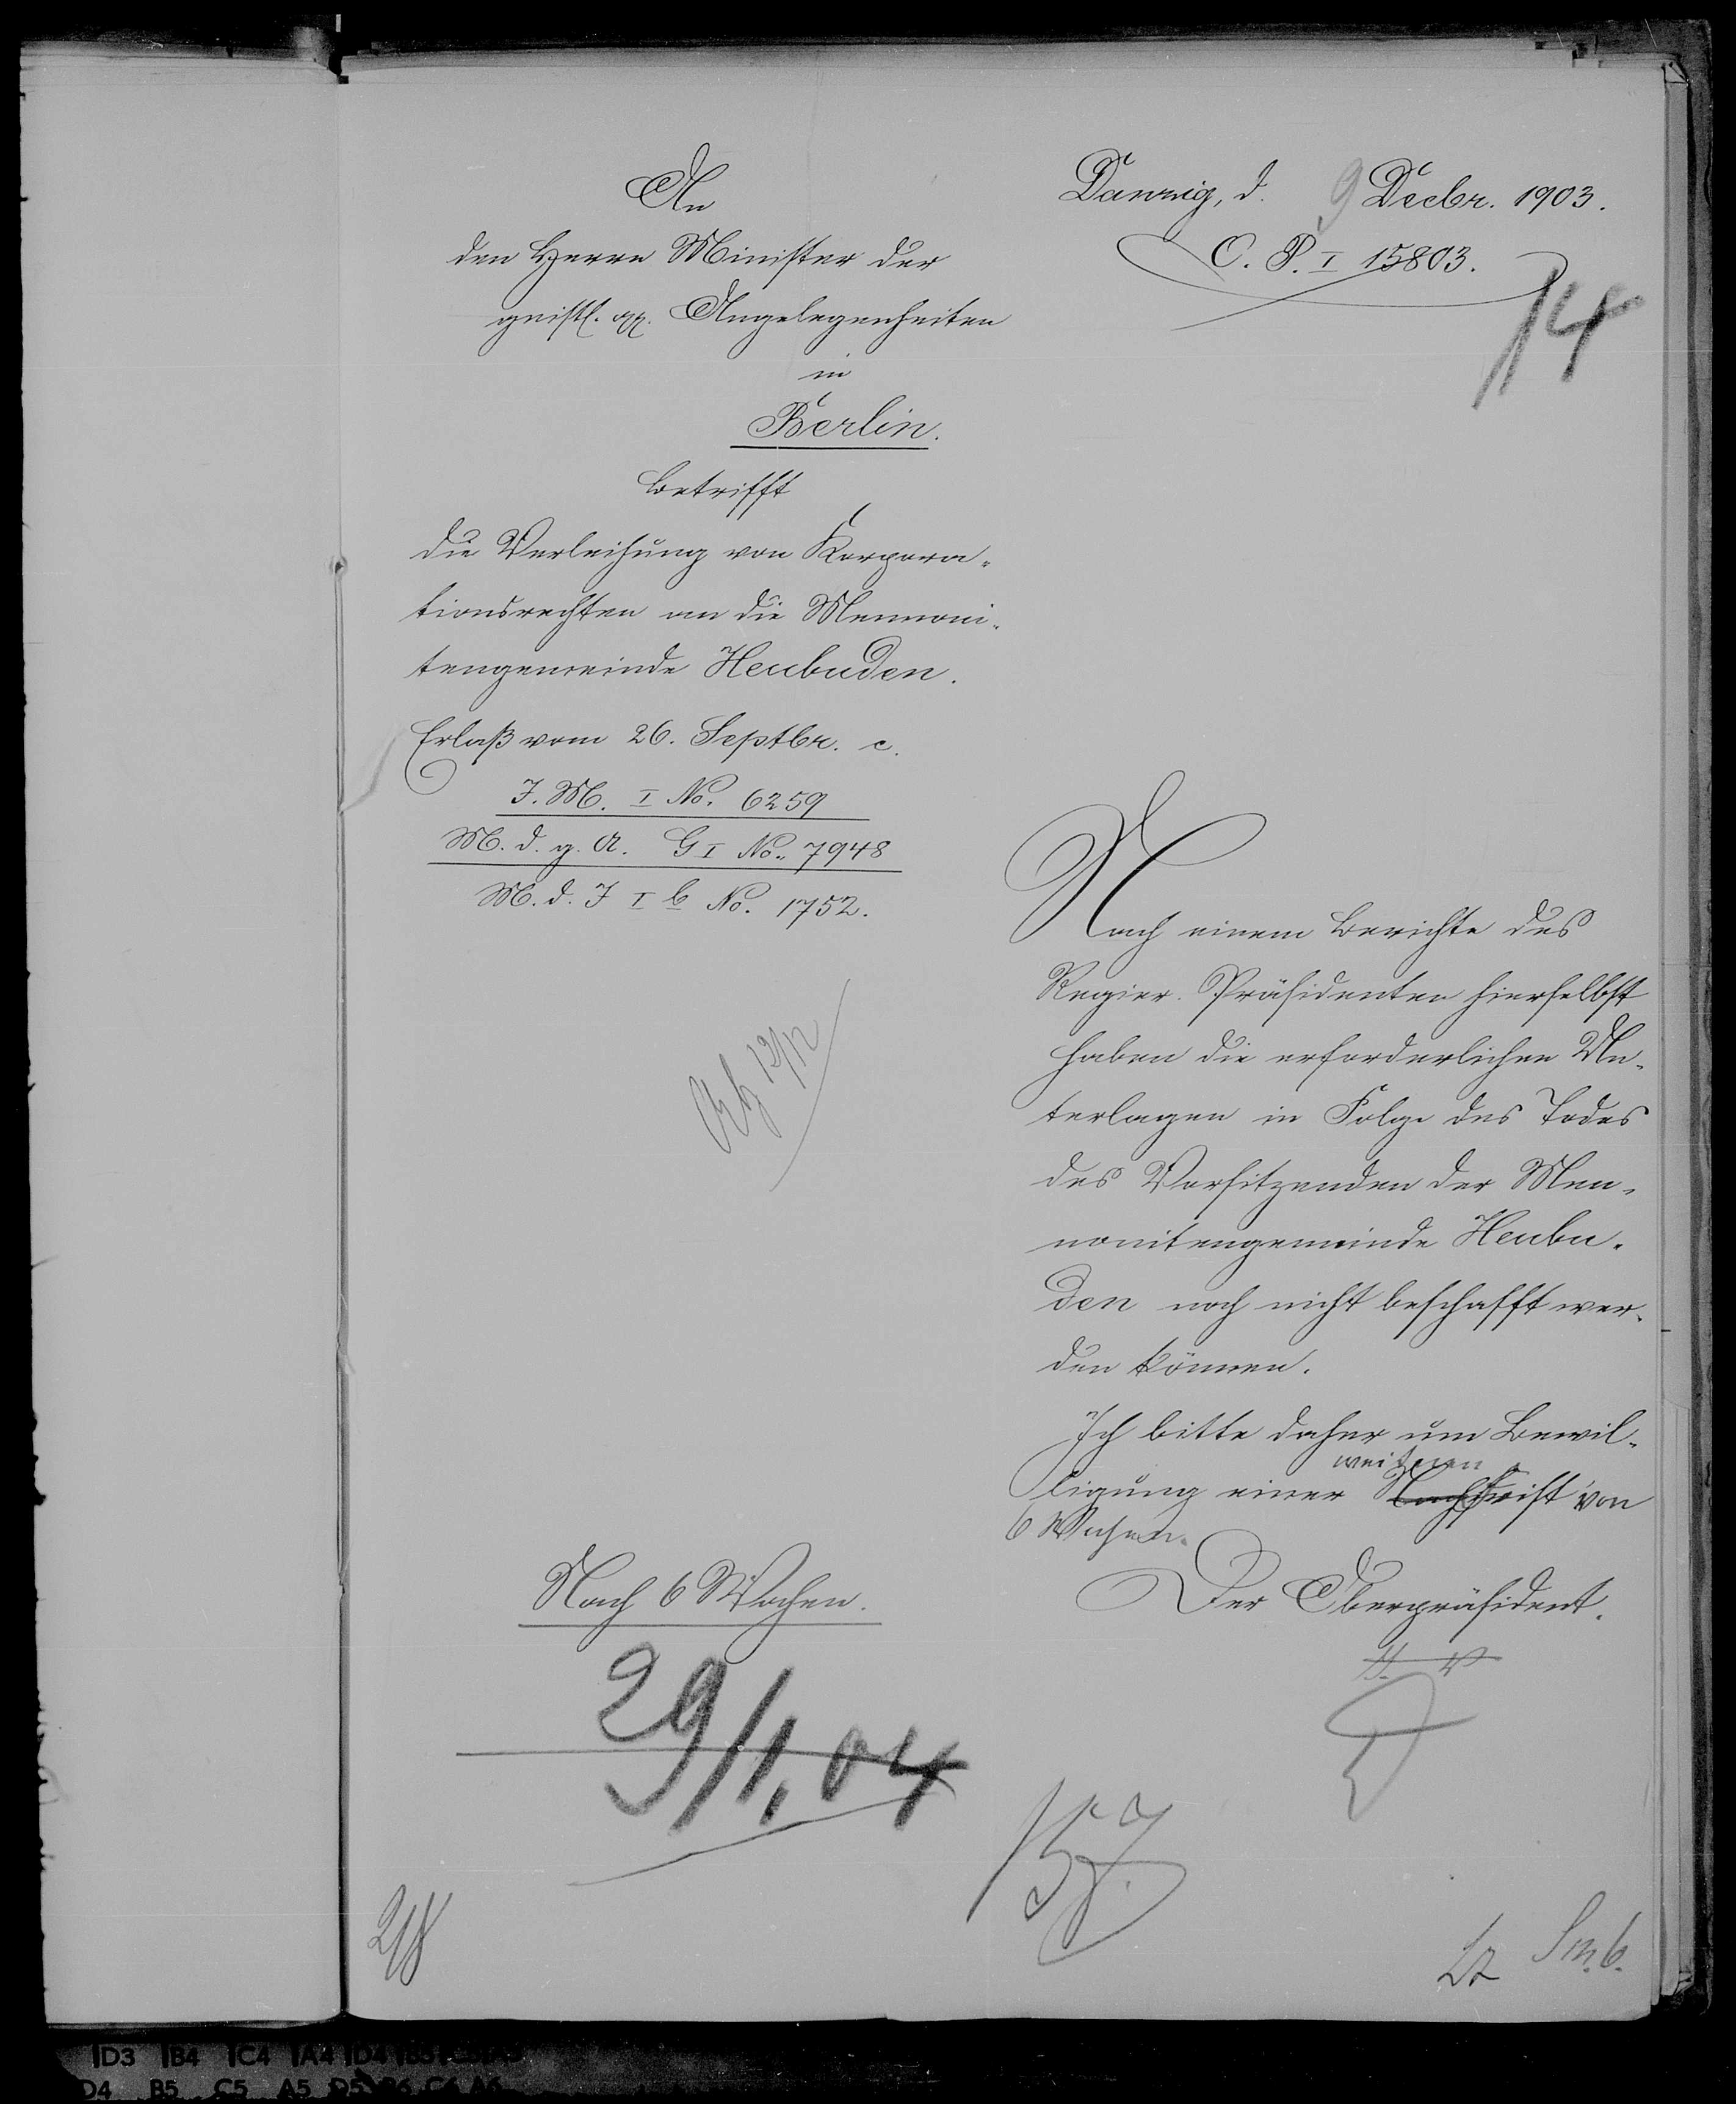 An
den Herrn Minister der
geistl. pp. Angelegenheiten
in
Berlin.
Betrifft
die Verleihung von Korpora-
tionsrechten an die Mennoni-
tengemeinde Heubuden.
Erlaß vom 26. Septbr. c.
J. M. I No. 6259
M. d. g. A. G I No. 7948
M. d. J I b No. 1752.
12/12
Nach 6 Wochen.
29/1.04
Danzig, d. 9 Decbr. 1903.
O. P. I 15803.
14
Nach einem Berichte des
Regier. Präsidenten hierselbst
haben die erforderlichen Un-
terlagen in Folge des Todes
des Vorsitzenden der Men-
nonitengemeinde Heubu-
den noch nicht beschafft wer-
den können.
Ich bitte daher um Bewil-
weiteren
ligung einer Nachfrist von
6 Wochen.
Der Oberpräsident.
D4 B5 C5 A5 D5 B6 C6 A6
D3 B4 C4 A4 D4